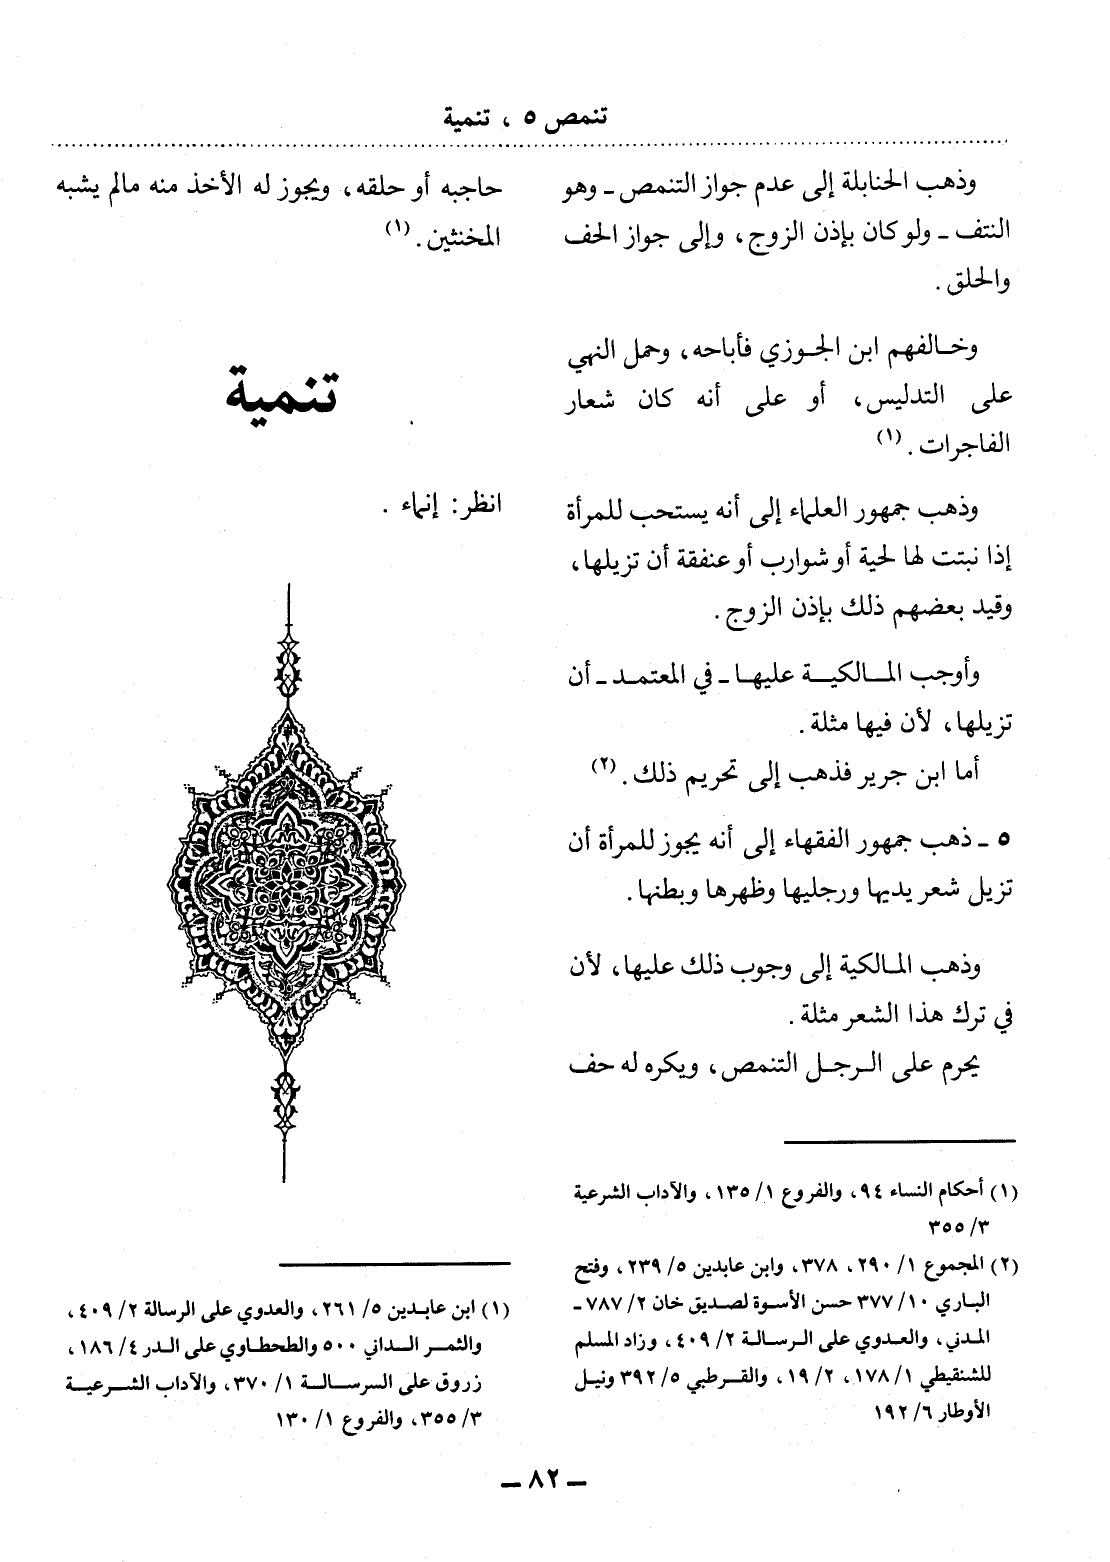 تنمص ٥ ، تنمية
وذهب الحنابلة إلى عدم جواز التنمص ـ وهو
النتف ـ ولو كان بإذن الزوج، وإلى جواز الحف
والحلق .
وخالفهم ابن الجوزي فأباحه، وحمل النهي
على التدليس، أو على أنه كان شعار
الفاجرات . (١)
وذهب جمهور العلماء إلى أنه يستحب للمرأة
إذا نبتت لها لحية أو شوارب أو عنفقة أن تزيلها،
وقيد بعضهم ذلك بإذن الزوج .
وأوجب المالكية عليها ـ في المعتمد ـ أن
تزيلها، لأن فيها مثلة .
أما ابن جرير فذهب إلى تحريم ذلك . (٢)
٥ ـ ذهب جمهور الفقهاء إلى أنه يجوز للمرأة أن
تزيل شعر يديها ورجليها وظهرها وبطنها .
وذهب المالكية إلى وجوب ذلك عليها، لأن
في ترك هذا الشعر مثلة .
يحرم على الرجل التنمص، ويكره له حف
(١) أحكام النساء ٩٤، والفروع ١/ ١٣٥، والآداب الشرعية
٣/ ٣٥٥
(٢) المجموع ١/ ٢٩٠، ٣٧٨، وابن عابدين ٥/ ٢٣٩، وفتح
الباري ١٠/ ٣٧٧ حسن الأسوة لصديق خان ٢/ ٧٨٧ ـ
المدني، والعدوي على الرسالة ٢/ ٤٠٩، وزاد المسلم
للشنقيطي ١/ ١٧٨، ٢/ ١٩، والقرطبي ٥/ ٣٩٢ ونيل
الأوطار ٦/ ١٩٢
حاجبه أو حلقه، ويجوز له الأخذ منه مالم يشبه
المخنثين . (١)
تنمية
انظر: إنماء .
(١) ابن عابدين ٥/ ٢٦١، والعدوي على الرسالة ٢/ ٤٠٩،
والثمر الداني ٥٠٠ والطحطاوي على الدر ٤/ ١٨٦،
زروق على السرسالة ١/ ٣٧٠، والآداب الشرعية
٣/ ٣٥٥، والفروع ١/ ١٣٠
ـ ٨٢ ـ